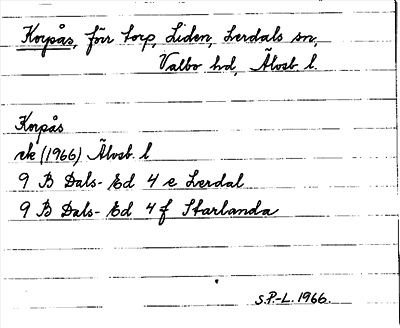 Korpås, förr torp, Liden, Lerdals sn,
Valbo hd, Älvsb. l.
Korpås
ek (1966) Älvsb. l
9 B Dals-Ed 4 e Lerdal
9 B Dals-Ed 4 f Starlanda
S.P.-L. 1966.